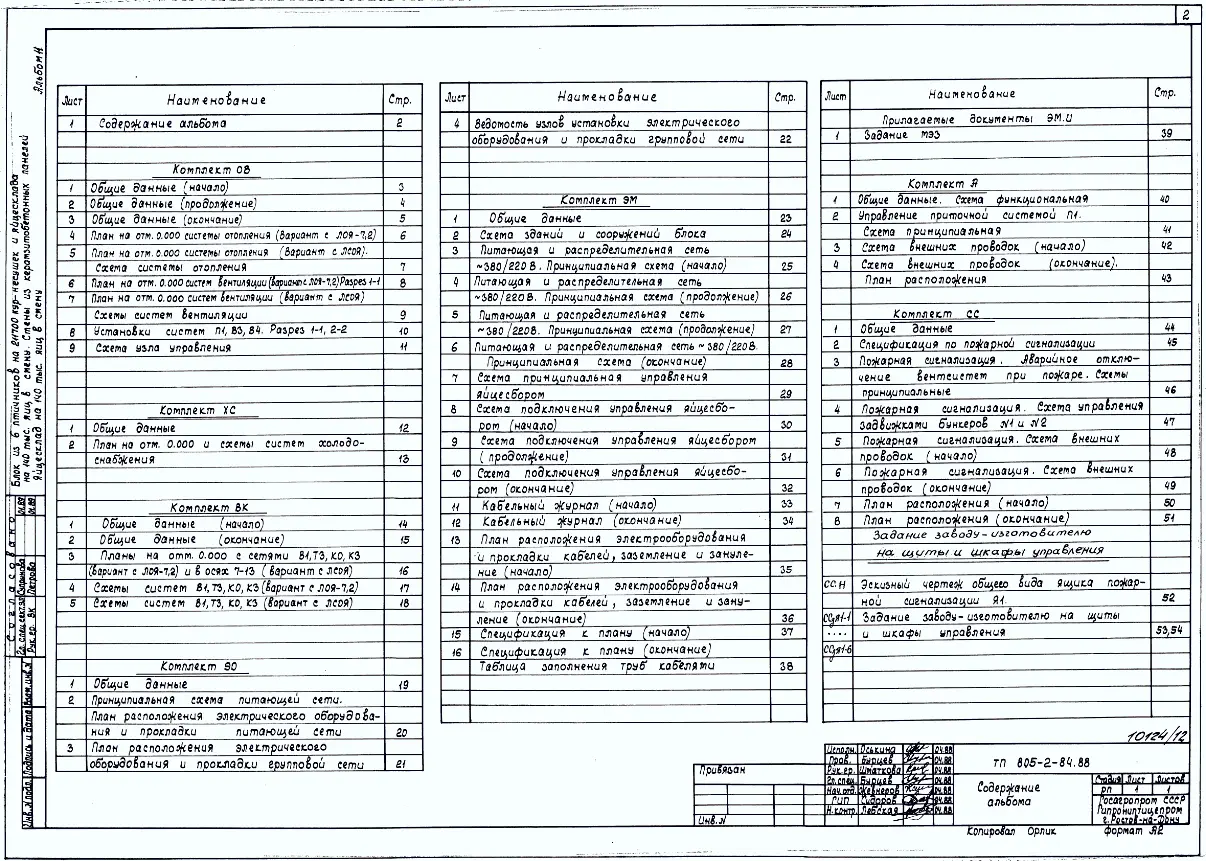 2
Альбом II
Блок из 6 птичников на 211700 кур-несушек и яйцесклада
на 140 тыс. яиц в смену. Стены из керамзитобетонных панелей
Яйцесклад на 140 тыс. яиц в смену
Лист Наименование Стр.
1 Содержание альбома 2
Комплект ОВ
1 Общие данные (начало) 3
2 Общие данные (продолжение) 4
3 Общие данные (окончание) 5
4 План на отм. 0.000 системы отопления (Вариант с ЛОЯ-7,2) 6
5 План на отм. 0.000 системы отопления (Вариант с ЛСОЯ).
Схема системы отопления 7
6 План на отм. 0.000 систем вентиляции (Вариант с ЛОЯ-7,2) Разрез 1-1 8
7 План на отм. 0.000 систем вентиляции (Вариант с ЛСОЯ)
Схемы систем вентиляции 9
8 Установки систем П1, В3, В4. Разрез 1-1, 2-2 10
9 Схема узла управления 11
Комплект ХС
1 Общие данные 12
2 План на отм. 0.000 и схемы систем холодо-
снабжения 13
Комплект ВК
1 Общие данные (начало) 14
2 Общие данные (окончание) 15
3 Планы на отм. 0.000 с сетями В1, Т3, К0, К3
(Вариант с ЛОЯ-7,2) и в осях 7-13 (Вариант с ЛСОЯ) 16
4 Схемы систем В1, Т3, К0, К3 (Вариант с ЛОЯ-7,2) 17
5 Схемы систем В1, Т3, К0, К3 (Вариант с ЛСОЯ) 18
Комплект ЭО
1 Общие данные 19
2 Принципиальная схема питающей сети.
План расположения электрического оборудова-
ния и прокладки питающей сети 20
3 План расположения электрического
оборудования и прокладки групповой сети 21
Лист Наименование Стр.
4 Ведомость узлов установки электрического
оборудования и прокладки групповой сети 22
Комплект ЭМ
1 Общие данные 23
2 Схема зданий и сооружений блока 24
3 Питающая и распределительная сеть
~380/220 В. Принципиальная схема (начало) 25
4 Питающая и распределительная сеть
~380/220 В. Принципиальная схема (продолжение) 26
5 Питающая и распределительная сеть
~380/220В. Принципиальная схема (продолжение) 27
6 Питающая и распределительная сеть ~380/220 В.
Принципиальная схема (окончание) 28
7 Схема принципиальная управления
яйцесбором 29
8 Схема подключения управления яйцесбо-
ром (начало) 30
9 Схема подключения управления яйцесбором
(продолжение) 31
10 Схема подключения управления яйцесбо-
ром (окончание) 32
11 Кабельный журнал (начало) 33
12 Кабельный журнал (окончание) 34
13 План расположения электрооборудования
и прокладки кабелей, заземление и зануле-
ние (начало) 35
14 План расположения электрооборудования
и прокладки кабелей, заземление и зану-
ление (окончание) 36
15 Спецификация к плану (начало) 37
16 Спецификация к плану (окончание)
Таблица заполнения труб кабелями 38
Лист Наименование Стр.
Прилагаемые документы ЭМ.И
1 Задание МЭЗ 39
Комплект А
1 Общие данные. Схема функциональная 40
2 Управление приточной системой П1.
Схема принципиальная 41
3 Схема внешних проводок (начало) 42
4 Схема внешних проводок (окончание).
План расположения 43
Комплект СС
1 Общие данные 44
2 Спецификация по пожарной сигнализации 45
3 Пожарная сигнализация. Аварийное отклю-
чение вентсистем при пожаре. Схемы
принципиальные 46
4 Пожарная сигнализация. Схема управления
задвижками бункеров N1 и N2 47
5 Пожарная сигнализация. Схема внешних
проводок (начало) 48
6 Пожарная сигнализация. Схема внешних
проводок (окончание) 49
7 План расположения (начало) 50
8 План расположения (окончание) 51
Задание заводу-изготовителю
на щиты и шкафы управления
СС.Н Эскизный чертеж общего вида ящика пожар-
ной сигнализации Я1. 52
ССдя1-1 Задание заводу-изготовителю на щиты
.... и шкафы управления 53,54
ССдя1-6
10124/12
Согласовано
Гл. спец.
Рук. гр. ВК Петрова
04.89
04.89
Взам. инв. N
Подпись и дата
Инв. N подл.
Привязан
Инв. N
Исполн. Оськина 04.88
Пров. Бурцев 04.88
Рук. гр. Шматкова 04.88
Гл. спец. Бурцев 04.88
Нач. отд. Жевнеров 04.88
ГИП Сидоров 04.88
Н. контр. Лебская 04.88
ТП 805-2-84.88
Содержание
альбома
Стадия Лист Листов
РП 1 1
Госагропром СССР
Гипрониптицепром
г. Ростов-на-Дону
Копировал Орлик Формат А2